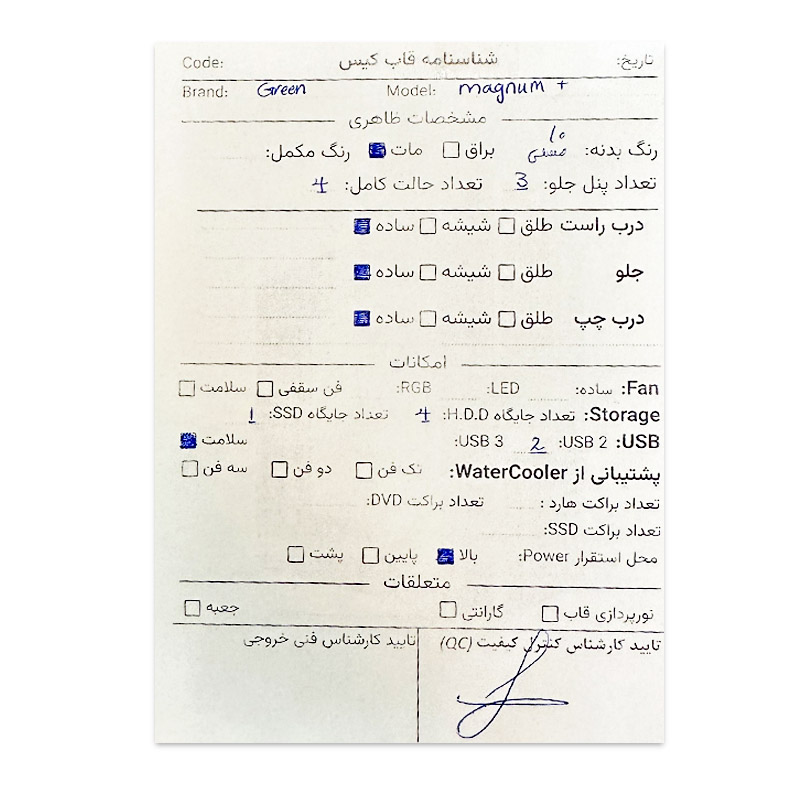 تاریخ: شناسنامه قاب کیس Code:
Brand: Green Model: magnum +
مشخصات ظاهری
رنگ بدنه: مشکی براق مات رنگ مکمل:
تعداد پنل جلو: 3 تعداد حالت کامل: 4
درب راست طلق شیشه ساده
جلو طلق شیشه ساده
درب چپ طلق شیشه ساده
امکانات
Fan: ساده: LED: RGB: فن سقفی سلامت
Storage: تعداد جایگاه H.D.D: 4 تعداد جایگاه SSD: 1
USB: USB 2: 2 USB 3: سلامت
پشتیبانی از WaterCooler: تک فن دو فن سه فن
تعداد براکت هارد : تعداد براکت DVD:
تعداد براکت SSD:
محل استقرار Power: بالا پایین پشت
متعلقات
نورپردازی قاب گارانتی جعبه
تایید کارشناس کنترل کیفیت (QC) تایید کارشناس فنی خروجی